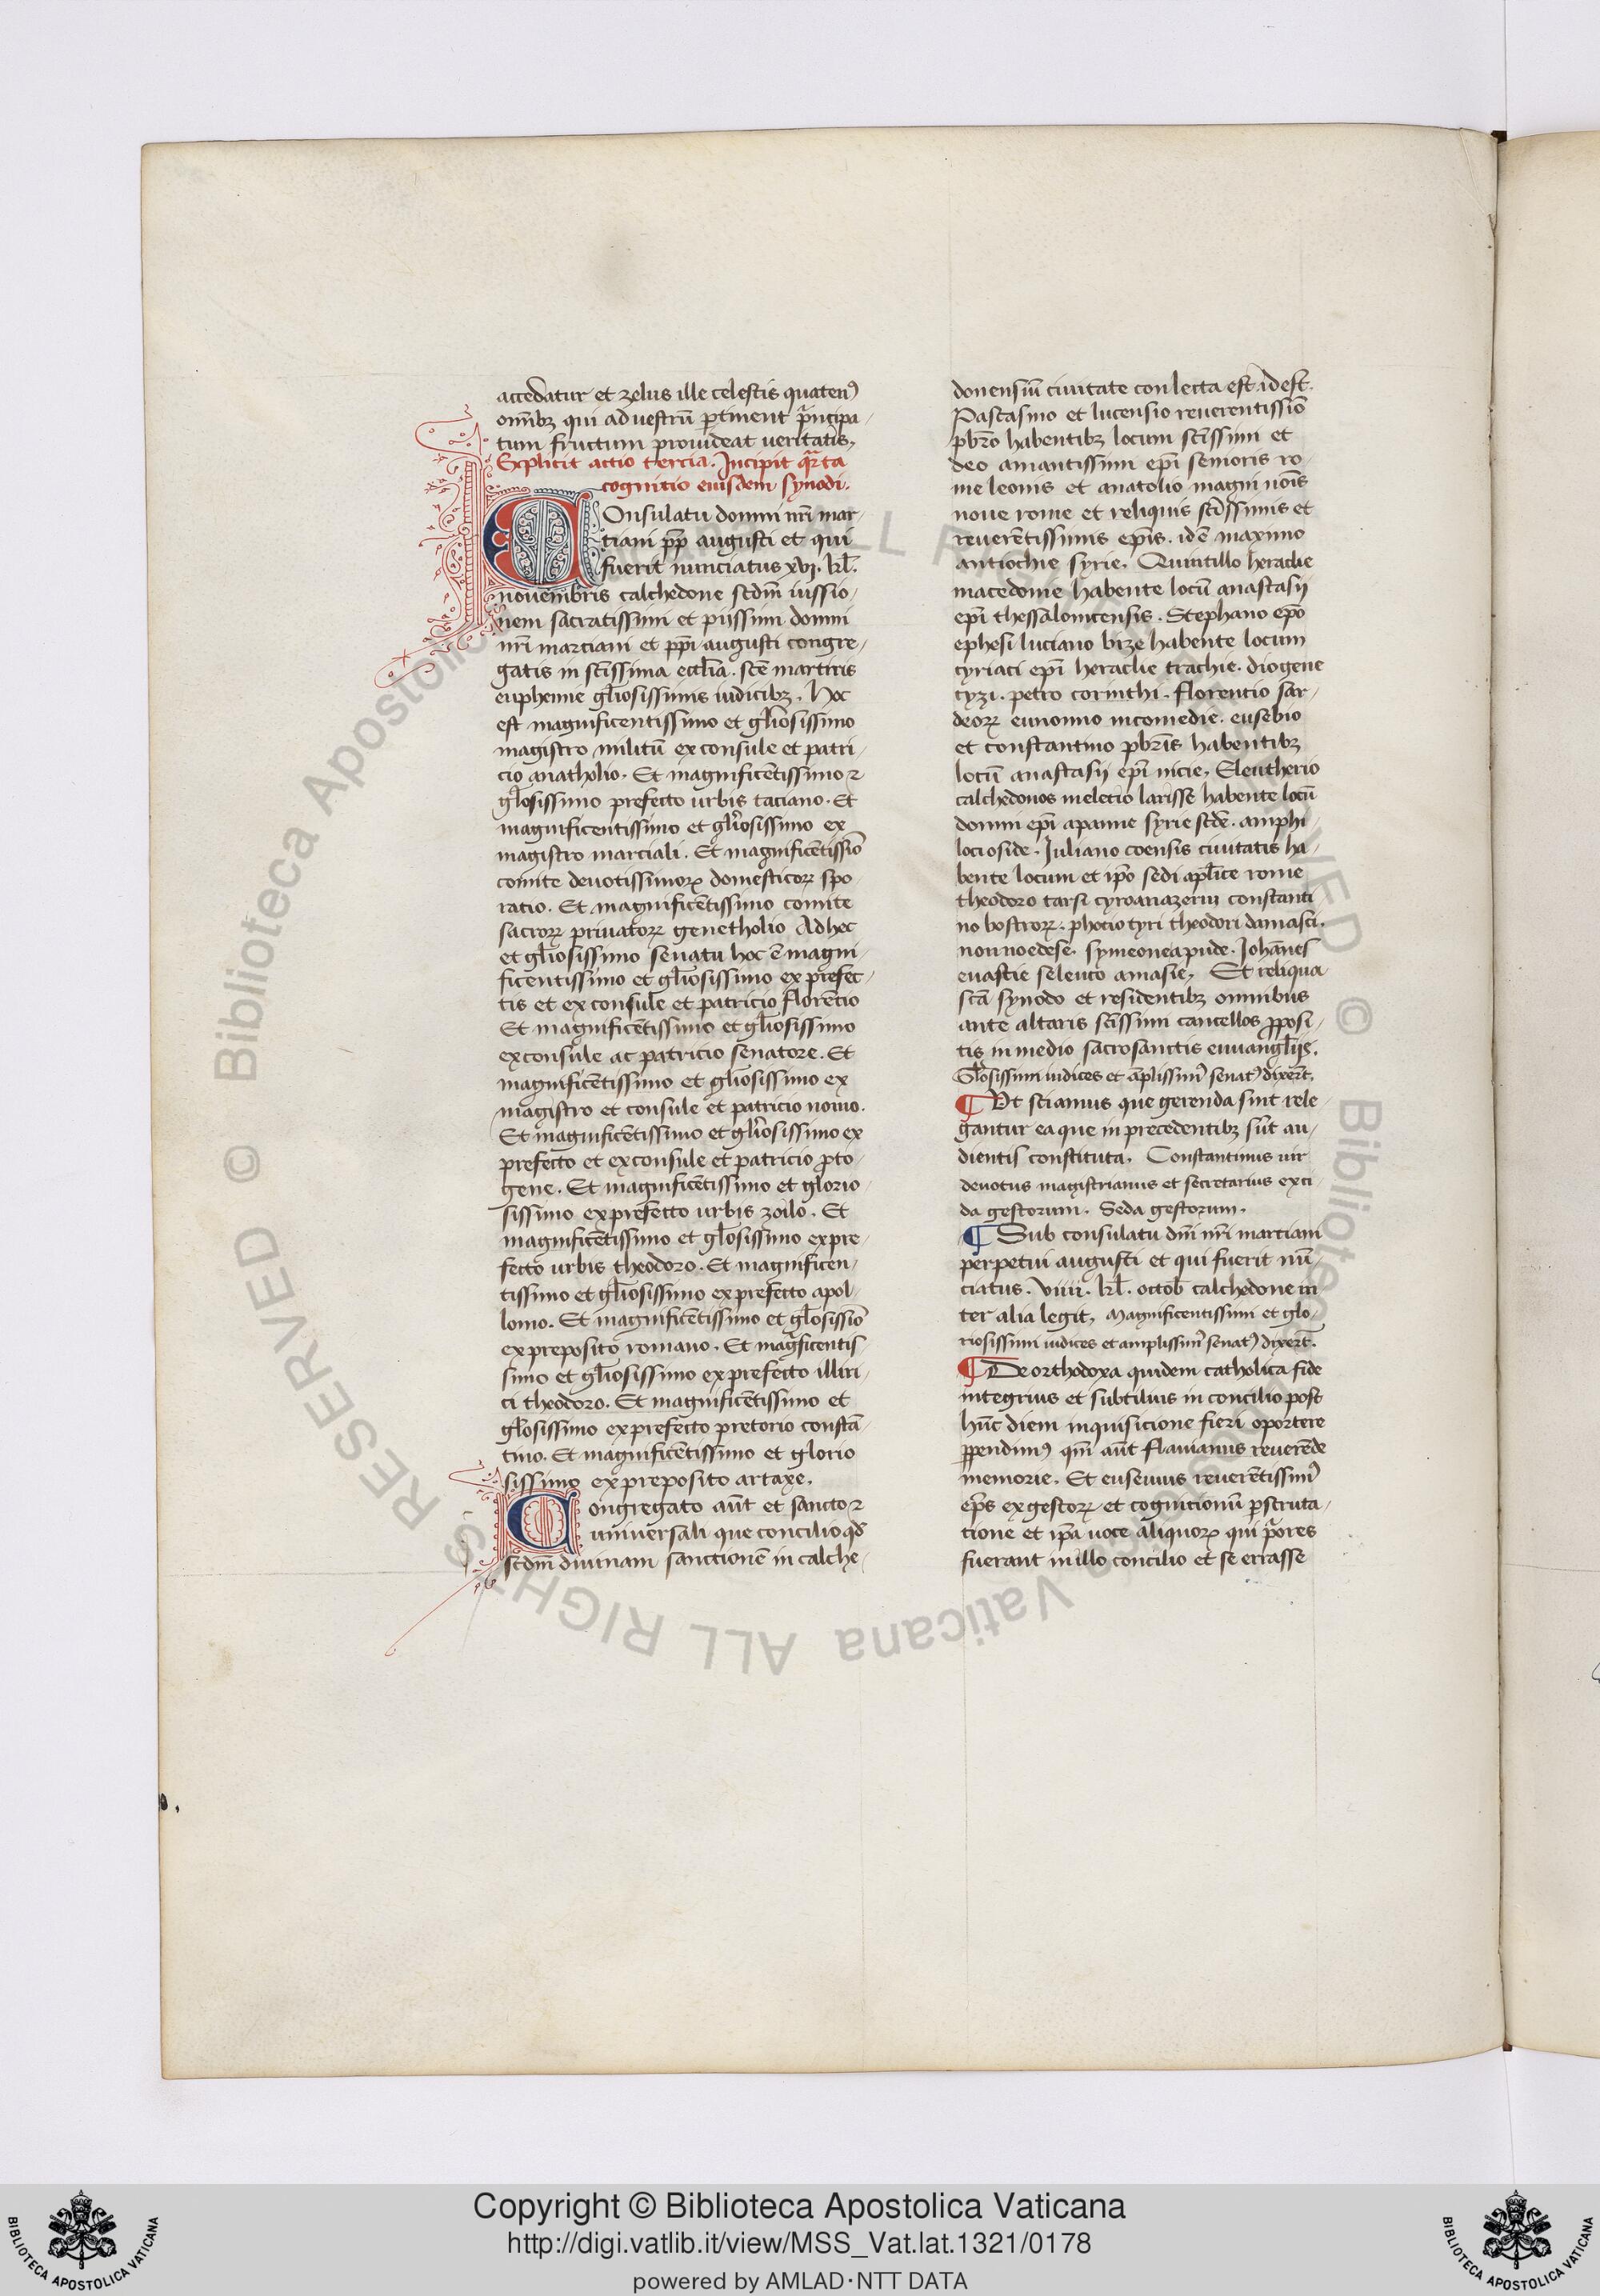 accedatur et zelus ille celestis quatenꝰ
om̄ibꝫ qui ad uestrū ꝑtinent p̄ncipa-
tum fructum prouideat ueritatis,
Explicit actio tercia. Incipit qrta
cognitio eiusdem synodi.
COnsulatu domini nr̄i mar-
tiani pp̄ augusti et qui
fuerit nunciatus xvi. kl̄.
nouembris calchedone scdm̄ iussio-
nem sacratissimi et piissimi domini
nr̄i marciani et pp̄i augusti congre-
gatis in sc̄issima eccl̄ia. sc̄e martiris
euphemie gl̄iosissimis iudicibꝫ. Hoc
est magnificentissimo et gl̄iosissimo
magistro militū ex consule et patri-
cio anatholio. Et magnificētissimo ⁊
gl̄osissimo prefecto urbis taciano. Et
magnificentissimo et gl̄iosissimo ex
magistro marciali. Et magnificētissīo
comite deuotissimoꝝ domesticoꝝ spo-
ratio. Et magnificētissimo comite
sacroꝝ priuatoꝝ genetholio Ad hec
et gl̄iosissimo senatu hoc ē magni-
ficentissimo et gl̄iosissimo ex prefec-
tis et ex consule et patricio florēcio
Et magnificētissimo et gl̄iosissimo
exconsule ac patricio senatore. Et
magnificētissimo et gl̄iosissimo ex
magistro et consule et patricio nomo.
Et magnificētissimo et gl̄iosissimo ex
prefecto et exconsule et patricio ꝓto-
gene. Et magnificētissimo et glorio-
sissimo exprefecto urbis zoilo. Et
magnificētissimo et gl̄osissimo expre-
fecto urbis theodoro. Et magnificen-
tissimo et gl̄iosissimo exprefecto apol-
lonio. Et magnificētissimo et gl̄osissīo
expreposito romano. Et mag̅ficentis-
simo et gl̄iosissimo exprefecto illiri-
ci theodoro. Et magnificētissimo et
gl̄osissimo exprefecto pretorio constā-
tino. Et magnificētissimo et glorio
sissimo expreposito artaxe.
Congregato aūt et sancto ⁊
uniuersali que concilio qđ
scdm̄ diuinam sanctionē in calche-
donensiū ciuitate conlecta est id est.
Pascasino et lucensio reuerentissīo
pbr̄o habentibꝫ locum sc̄issimi et
deo amantissimi epī senioris ro-
me leonis et anatolio magni noīs
noue rome et reliquis sc̄issimis et
reuerētissimis ep̄is. idē maximo
antiochie syrie. Quintillo heraclie
macedonie habente locū anastasij
epī thessalonicensis. Stephano ep̄o
ephesi luciano bize habente locum
cyriaci epī heraclie trachie. diogene
cyzi. petro corinthi. florentio sar-
deoꝝ eunomio nicomedie. eusebio
et constantino pbr̄is habentibꝫ
locū anastasij epī nicie, Eleutherio
calchedonos meletio larisse habente locū
domni epī apamie syrie scd̄e. amphi-
loci oside. Iuliano coensis ciuitatis ha-
bente locum et ip̄o sedi apl̄ice rome
theodoro tarsi cyroanazerni constanti-
no bostroꝝ. photio tyri theodori damasci.
non noedese. symeoneapude. Iohānes
euastie seleuco amasie, Et reliqua
sc̄a synodo et residentibꝫ omnibus
ante altaris sc̄issimi cancellos ꝓposi-
tis in medio sacrosanctis euuangl̄ijs.
Gl̄osissimi iudices et āplissimꝰ senatꝰ dixer̄t.
¶ Vt sciamus que gerenda sint rele-
gantur ea que in precedentibꝫ sūt au-
dientis constituta. Constantinus uir
deuotus magistrianus et secretarius exci-
da gestorum. Seda gestorum.
¶ Sub consulatu dn̄i nr̄i marciani
perpetui augusti et qui fuerit nū-
ciatus. viiii. kl̄. octob̄ calchedone in-
ter alia legit, Magnificentissimi et glo-
riosissimi iudices et amplissimꝰ senatꝰ dixer̄t.
¶ De orthodoxa quidem catholica fide
integrius et subtilius in concilio post
hūc diem inquisicione fieri oportere
ꝑpendimꝰ qm̄ aūt flauianus reuerēde
memorie. Et euseuius reuerētissimꝰ
ep̄s ex gestoꝝ et cognitionū ꝑscruta-
tione et ip̄a uoce aliquoꝝ qui p̄ores
fuerant in illo concilio et se errasse
Copyright © Biblioteca Apostolica Vaticana
http://digi.vatlib.it/view/MSS_Vat.lat.1321/0178
powered by AMLAD·NTT DATA